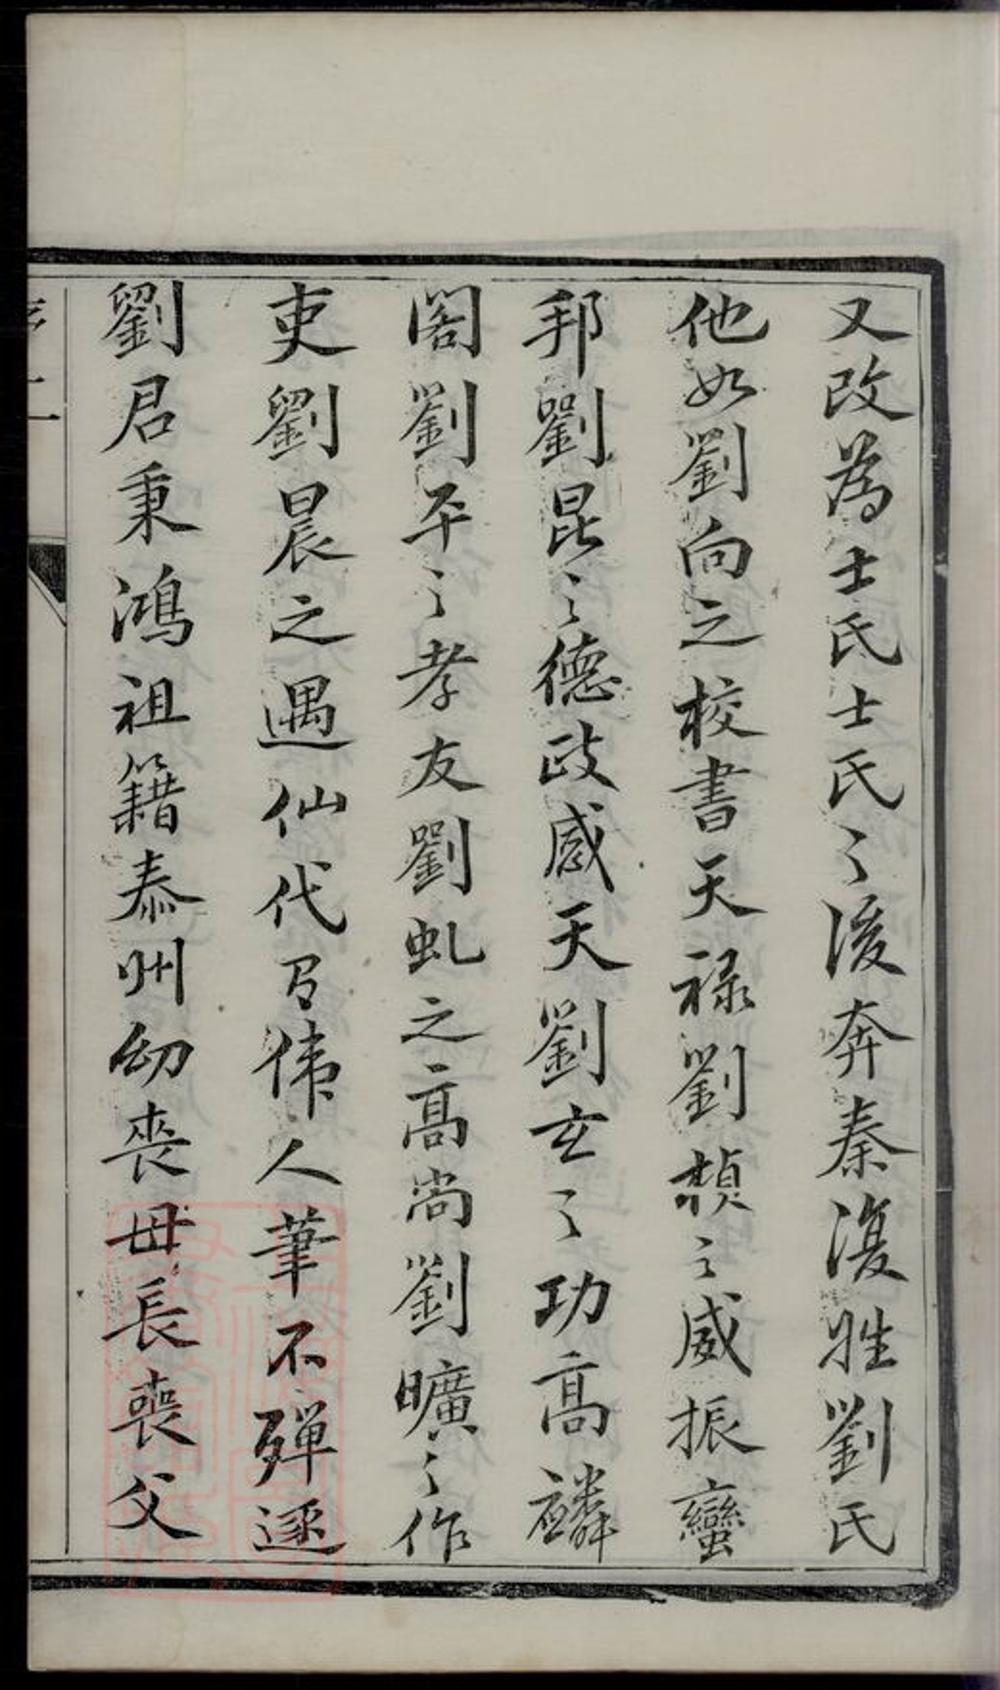 又改為士氏士氏之後奔秦復姓劉氏
他如劉向之校書天祿劉楨之威振蠻
邦劉昆之德政感天劉玄之功高麟
閣劉平之孝友劉虬之高尚劉曠之作
吏劉晨之遇仙代有偉人筆不殫述
劉君秉鴻祖籍泰州幼喪母長喪父
序